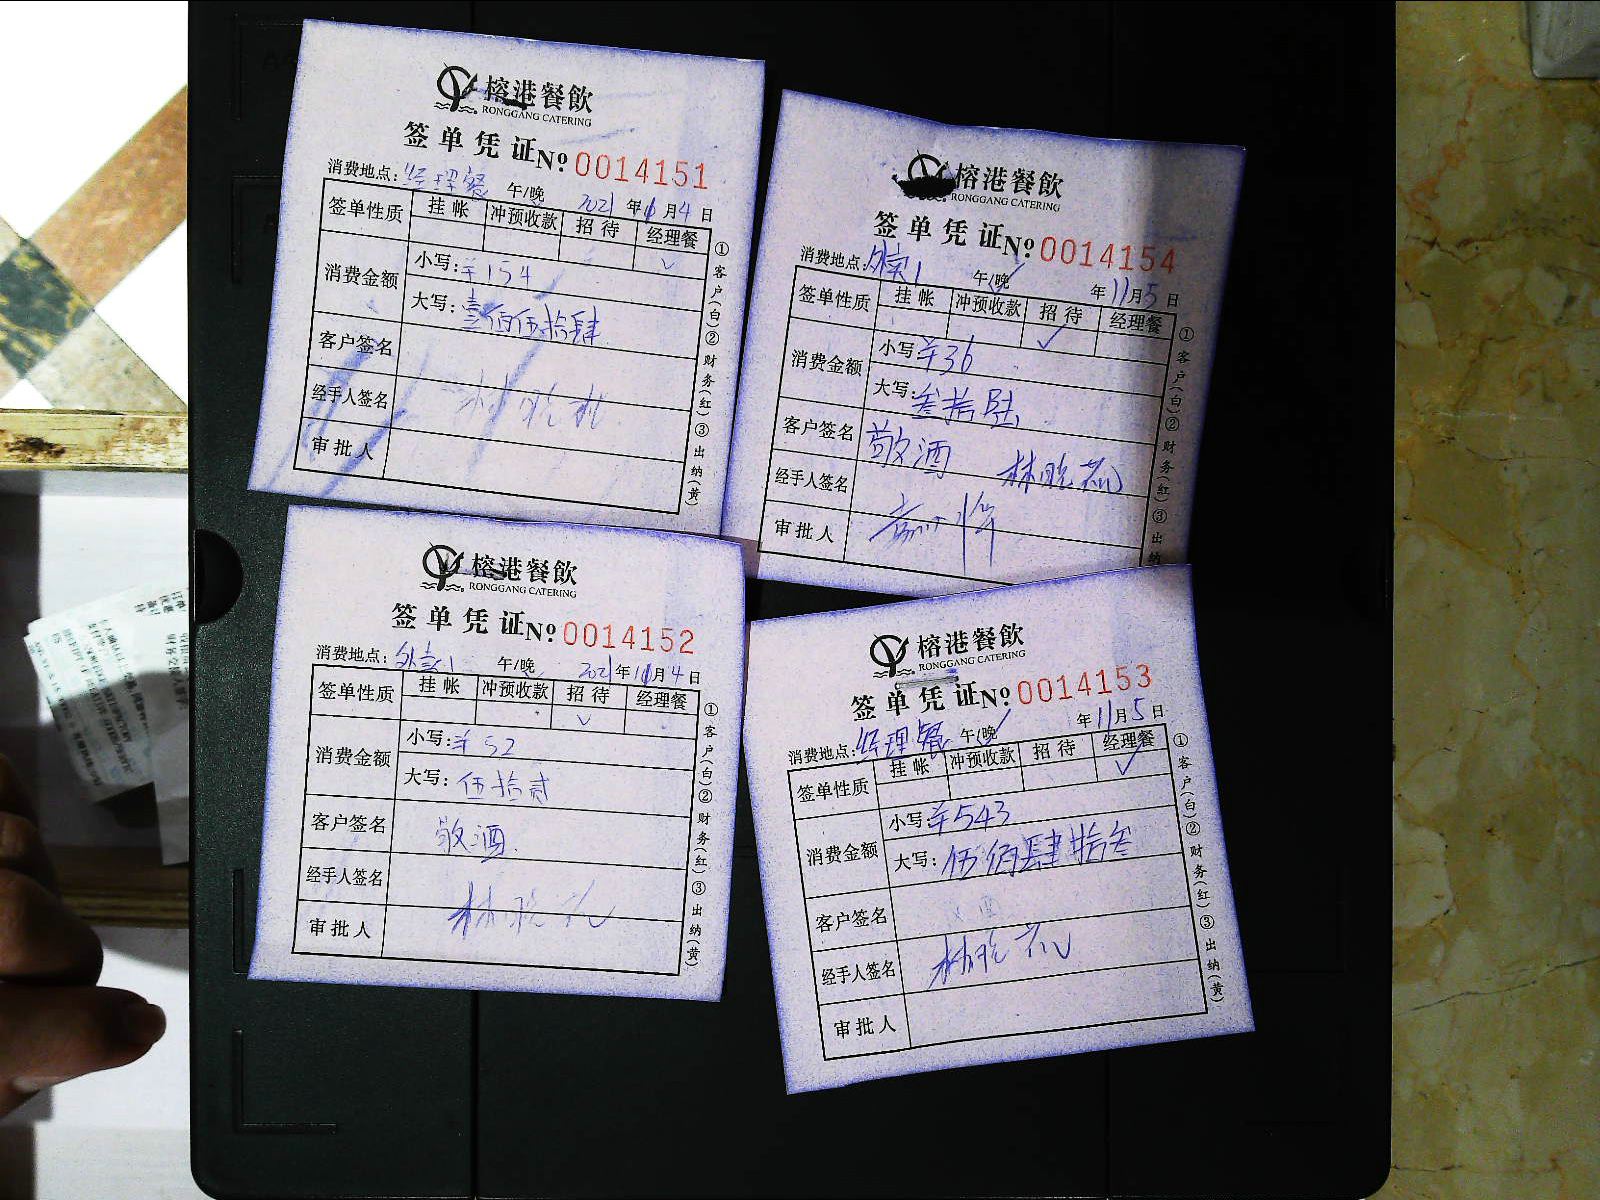 榕港餐飲
RONGGANG CATERING
签单凭证 No 0014151
消费地点：经理餐 午/晚 2021年11月4日
签单性质 挂帐 冲预收款 招待 经理餐
✓
消费金额 小写：¥154
大写：壹佰伍拾肆
客户签名
经手人签名 林晓
审批人
①客户(白)②财务(红)③出纳(黄)
榕港餐飲
RONGGANG CATERING
签单凭证 No 0014154
消费地点：外卖1 午/晚 年11月5日
签单性质 挂帐 冲预收款 招待 经理餐
✓
消费金额 小写 ¥36
大写：叁拾陆
客户签名 敬酒 林晓
经手人签名
审批人
①客户(白)②财务(红)③出纳
榕港餐飲
RONGGANG CATERING
签单凭证 No 0014152
消费地点：外卖1 午/晚 2021年11月4日
签单性质 挂帐 冲预收款 招待 经理餐
✓
消费金额 小写：¥52
大写：伍拾贰
客户签名 敬酒
经手人签名 林晓
审批人
①客户(白)②财务(红)③出纳(黄)
榕港餐飲
RONGGANG CATERING
签单凭证 No 0014153
消费地点：经理餐 午/晚 年11月5日
签单性质 挂帐 冲预收款 招待 经理餐
✓
消费金额 小写：¥543
大写：伍佰肆拾叁
客户签名
经手人签名 林晓
审批人
①客户(白)②财务(红)③出纳(黄)